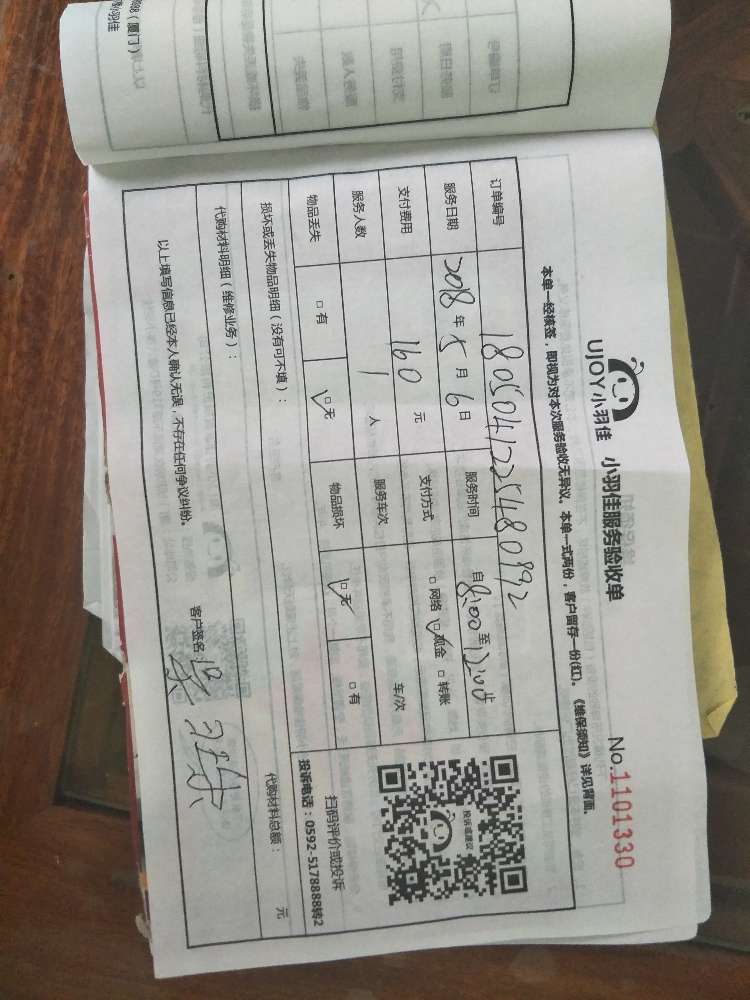 UJOY小羽佳 小羽佳服务验收单 No.1101330
本单一经核签，即视为对本次服务验收无异议。本单一式两份，客户留存一份(红)。《维保须知》详见背面。
订单编号
服务日期 2018 年 5 月 6 日 服务时间 自 8:00 至
支付费用 160 元 支付方式 □ 网络 □ 现金 □ 转账
服务人数 1 人 服务车次 车/次
物品丢失 □ 有 □ 无 物品损坏 □ 无 □ 有
投诉或建议
扫码评价或投诉
投诉电话：0592-5178888转2
损坏或丢失物品明细（没有可不填）：
代购材料明细（维修业务）： 代购材料总额： 元
以上填写信息已经本人确认无误，不存在任何争议纠纷。 客户签名：